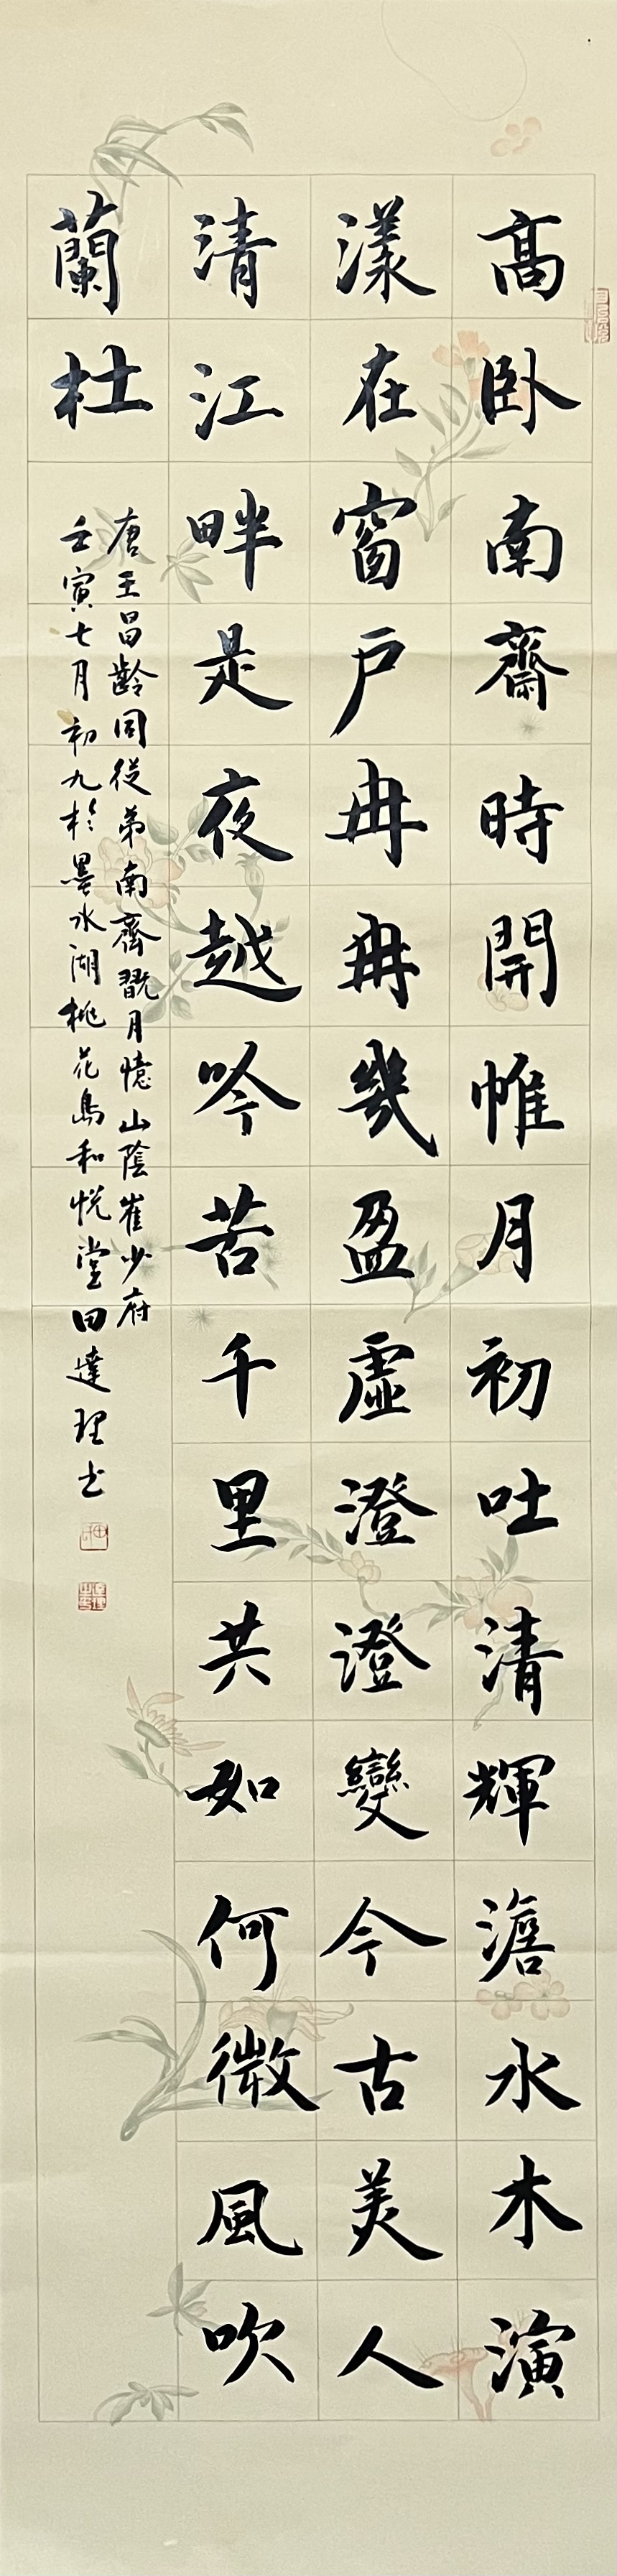 高卧南齋時開帷月初吐清輝澹水木演
漾在窗户冉冉幾盈虛澄澄變今古美人
清江畔是夜越吟苦千里共如何微風吹
蘭杜
唐王昌齡同從弟南齋翫月憶山陰崔少府
壬寅七月初九於墨水湖桃花島和悅堂田達理書